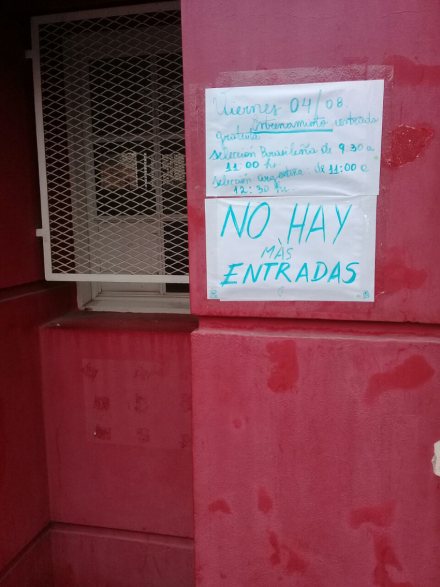 Viernes 04/08
Entrenamiento entrada
gratuita
Selección Brasileña de 9:30 a
11:00 h
Selección Argentina de 11:00 a
12:30 h.
NO HAY
MÀS
ENTRADAS